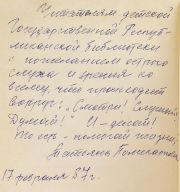 Читателям детской
Государственной Респуб-
ликанской библиотеки
с пожеланием острого
слуха и зрения ко
всему, что происходит
вокруг: „Смотри! Слушай!
Думай!" И – делай!
То есть – помогай жизни,
Татьяна Поликарпова
17 февраля 87 г.